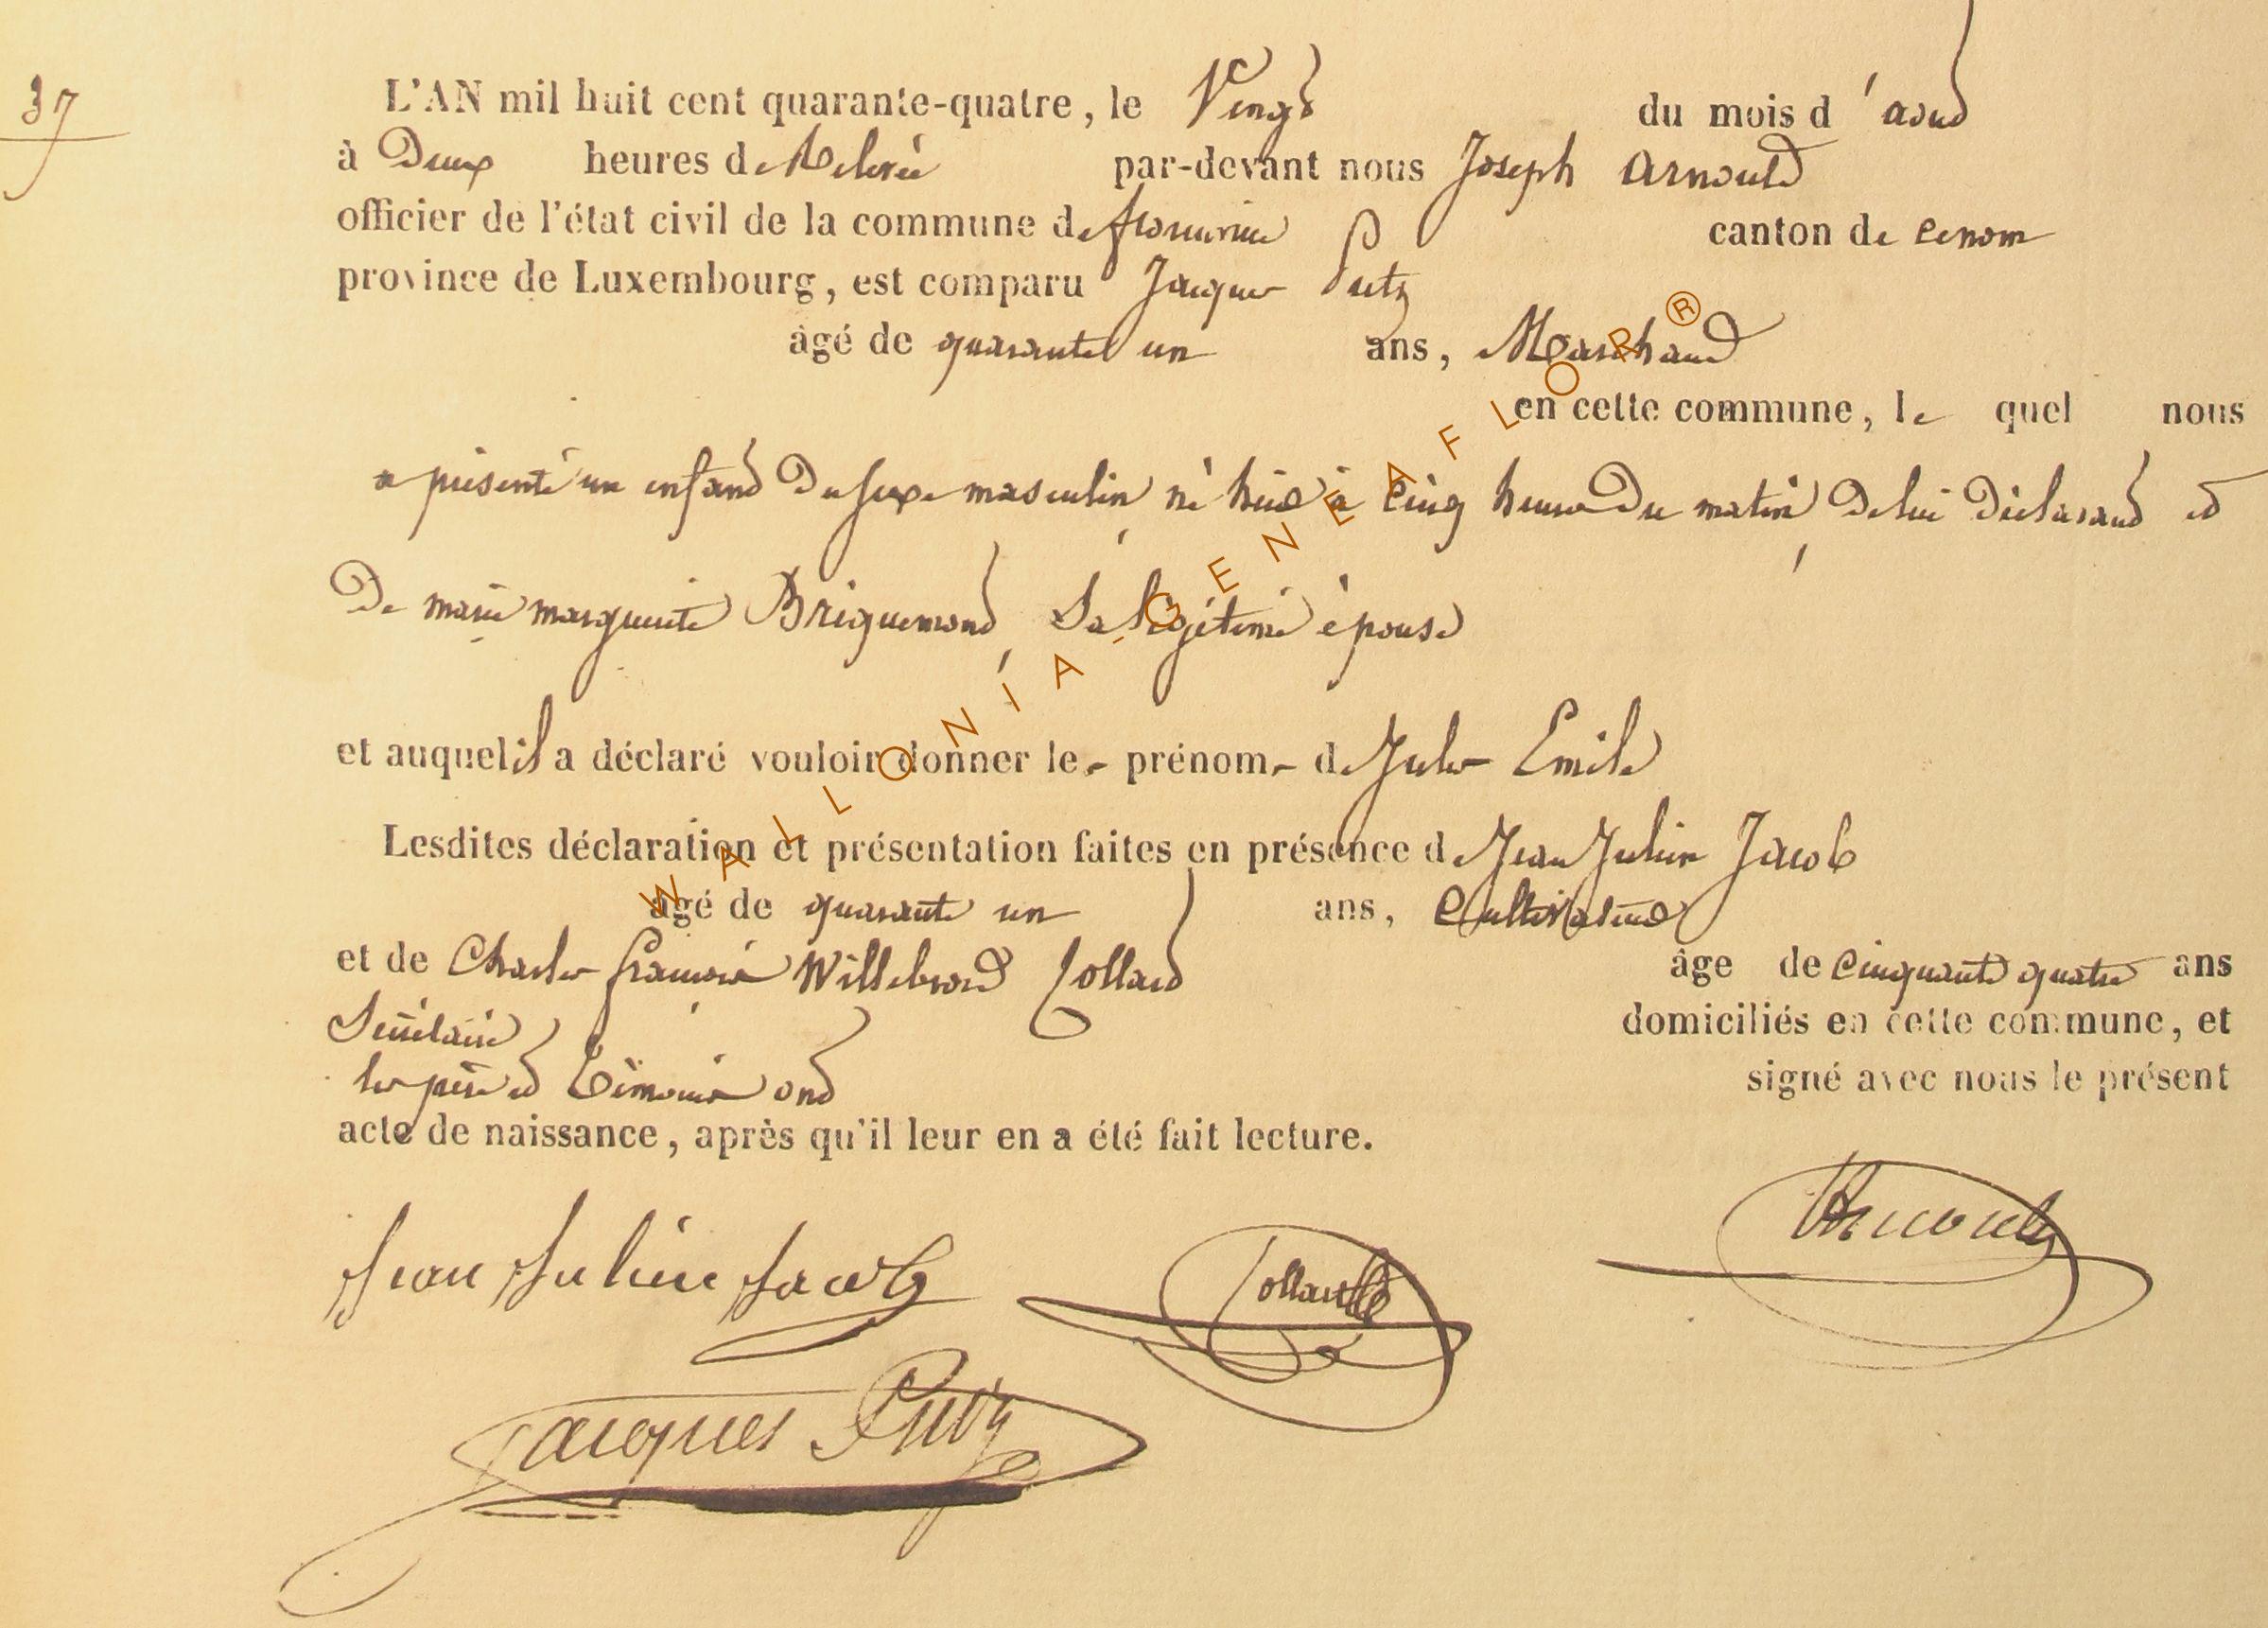 37
L'AN mil huit cent quarante-quatre, le Vingt du mois d'aout
à Deux heures de Relevée par-devant nous Joseph Arnould
officier de l'état civil de la commune de canton de
province de Luxembourg, est comparu Jacques Putz
âgé de quarante un ans, Marchand
en cette commune, le quel nous
a présenté un enfant du sexe masculin né hier à cinq heures du matin de lui déclarant et
De marie marguerite Briquemont Sa légitime épouse
et auquel il a déclaré vouloir donner les prénoms de Jules Emile
Lesdites déclaration et présentation faites en présence de Jean Julien Jacob
âgé de quarante un ans, Cultivateur
et de Charles françois Willebrord Collard âge de cinquante quatre ans
domiciliés en cette commune, et
les père et témoins ont signé avec nous le présent
acte de naissance, après qu'il leur en a été fait lecture.
Jean Julien Jacob Collard Arnould
Jacques Putz
WALLONIA-GENEAFLOR®